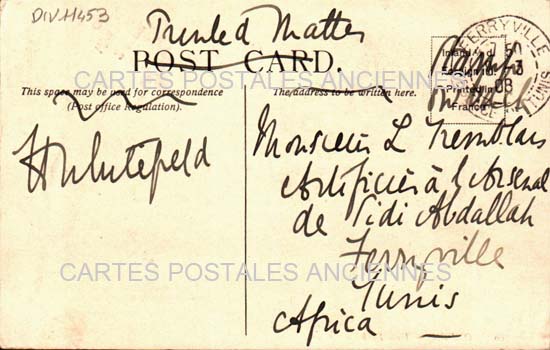 DIV.H453
Printed Matter
POST CARD.
CARTES POSTALES ANCIENNES
This space may be used for correspondence
(Post office Regulation).
The address to be written here.
Inland ½d stamp
Foreign 1d
Printed in
France
FERRYVILLE
TUNIS
08
H Whitefeld
Monsieur L Tremblais
Artificier à l'Arsenal
de Sidi Abdallah
Ferryville
Tunis
Africa
CARTES POSTALES ANCIENNES